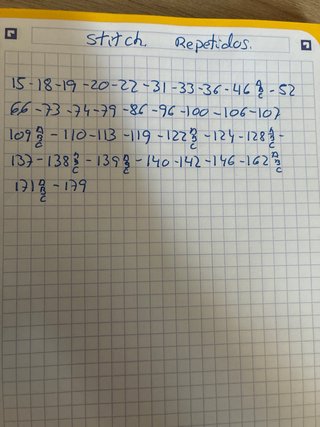 Stitch. Repetidos.
15-18-19-20-22-31-33-36-46 A B C -52
66-73-74-79-86-96-100-106-107
109 A B C -110-113-119-122 A B C -124-128 A B C -
137-138 A B C -139 A B C -140-142-146-162 A B C
171 A B C -179